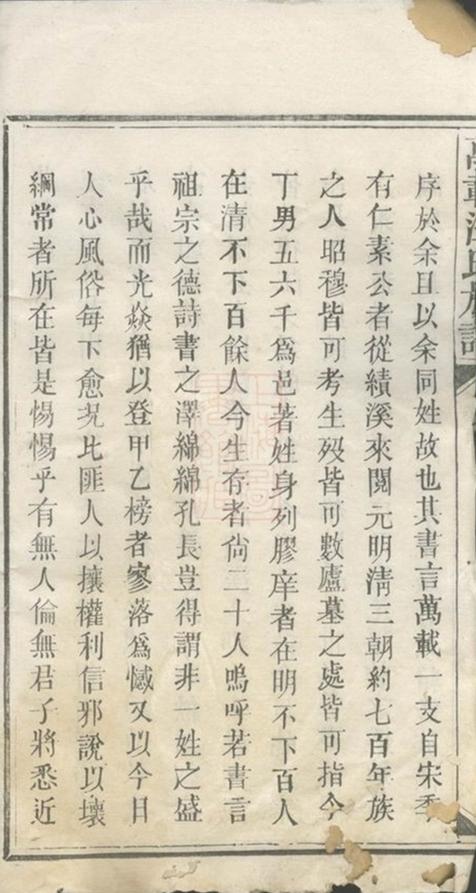 序於余且以余同姓故也其書言萬載一支自宋季
有仁素公者從績溪來閱元明清三朝約七百年族
之人昭穆皆可考生殁皆可數廬墓之處皆可指今
丁男五六千爲邑著姓身列膠庠者在明不下百人
在清不下百餘人今生存者尙二十人嗚呼若書言
祖宗之德詩書之澤綿綿孔長豈得謂非一姓之盛
乎哉而光焱猶以登甲乙榜者寥落爲憾又以今日
人心風俗每下愈况比匪人以攘權利信邪說以壞
綱常者所在皆是惕惕乎有無人倫無君子將悉近